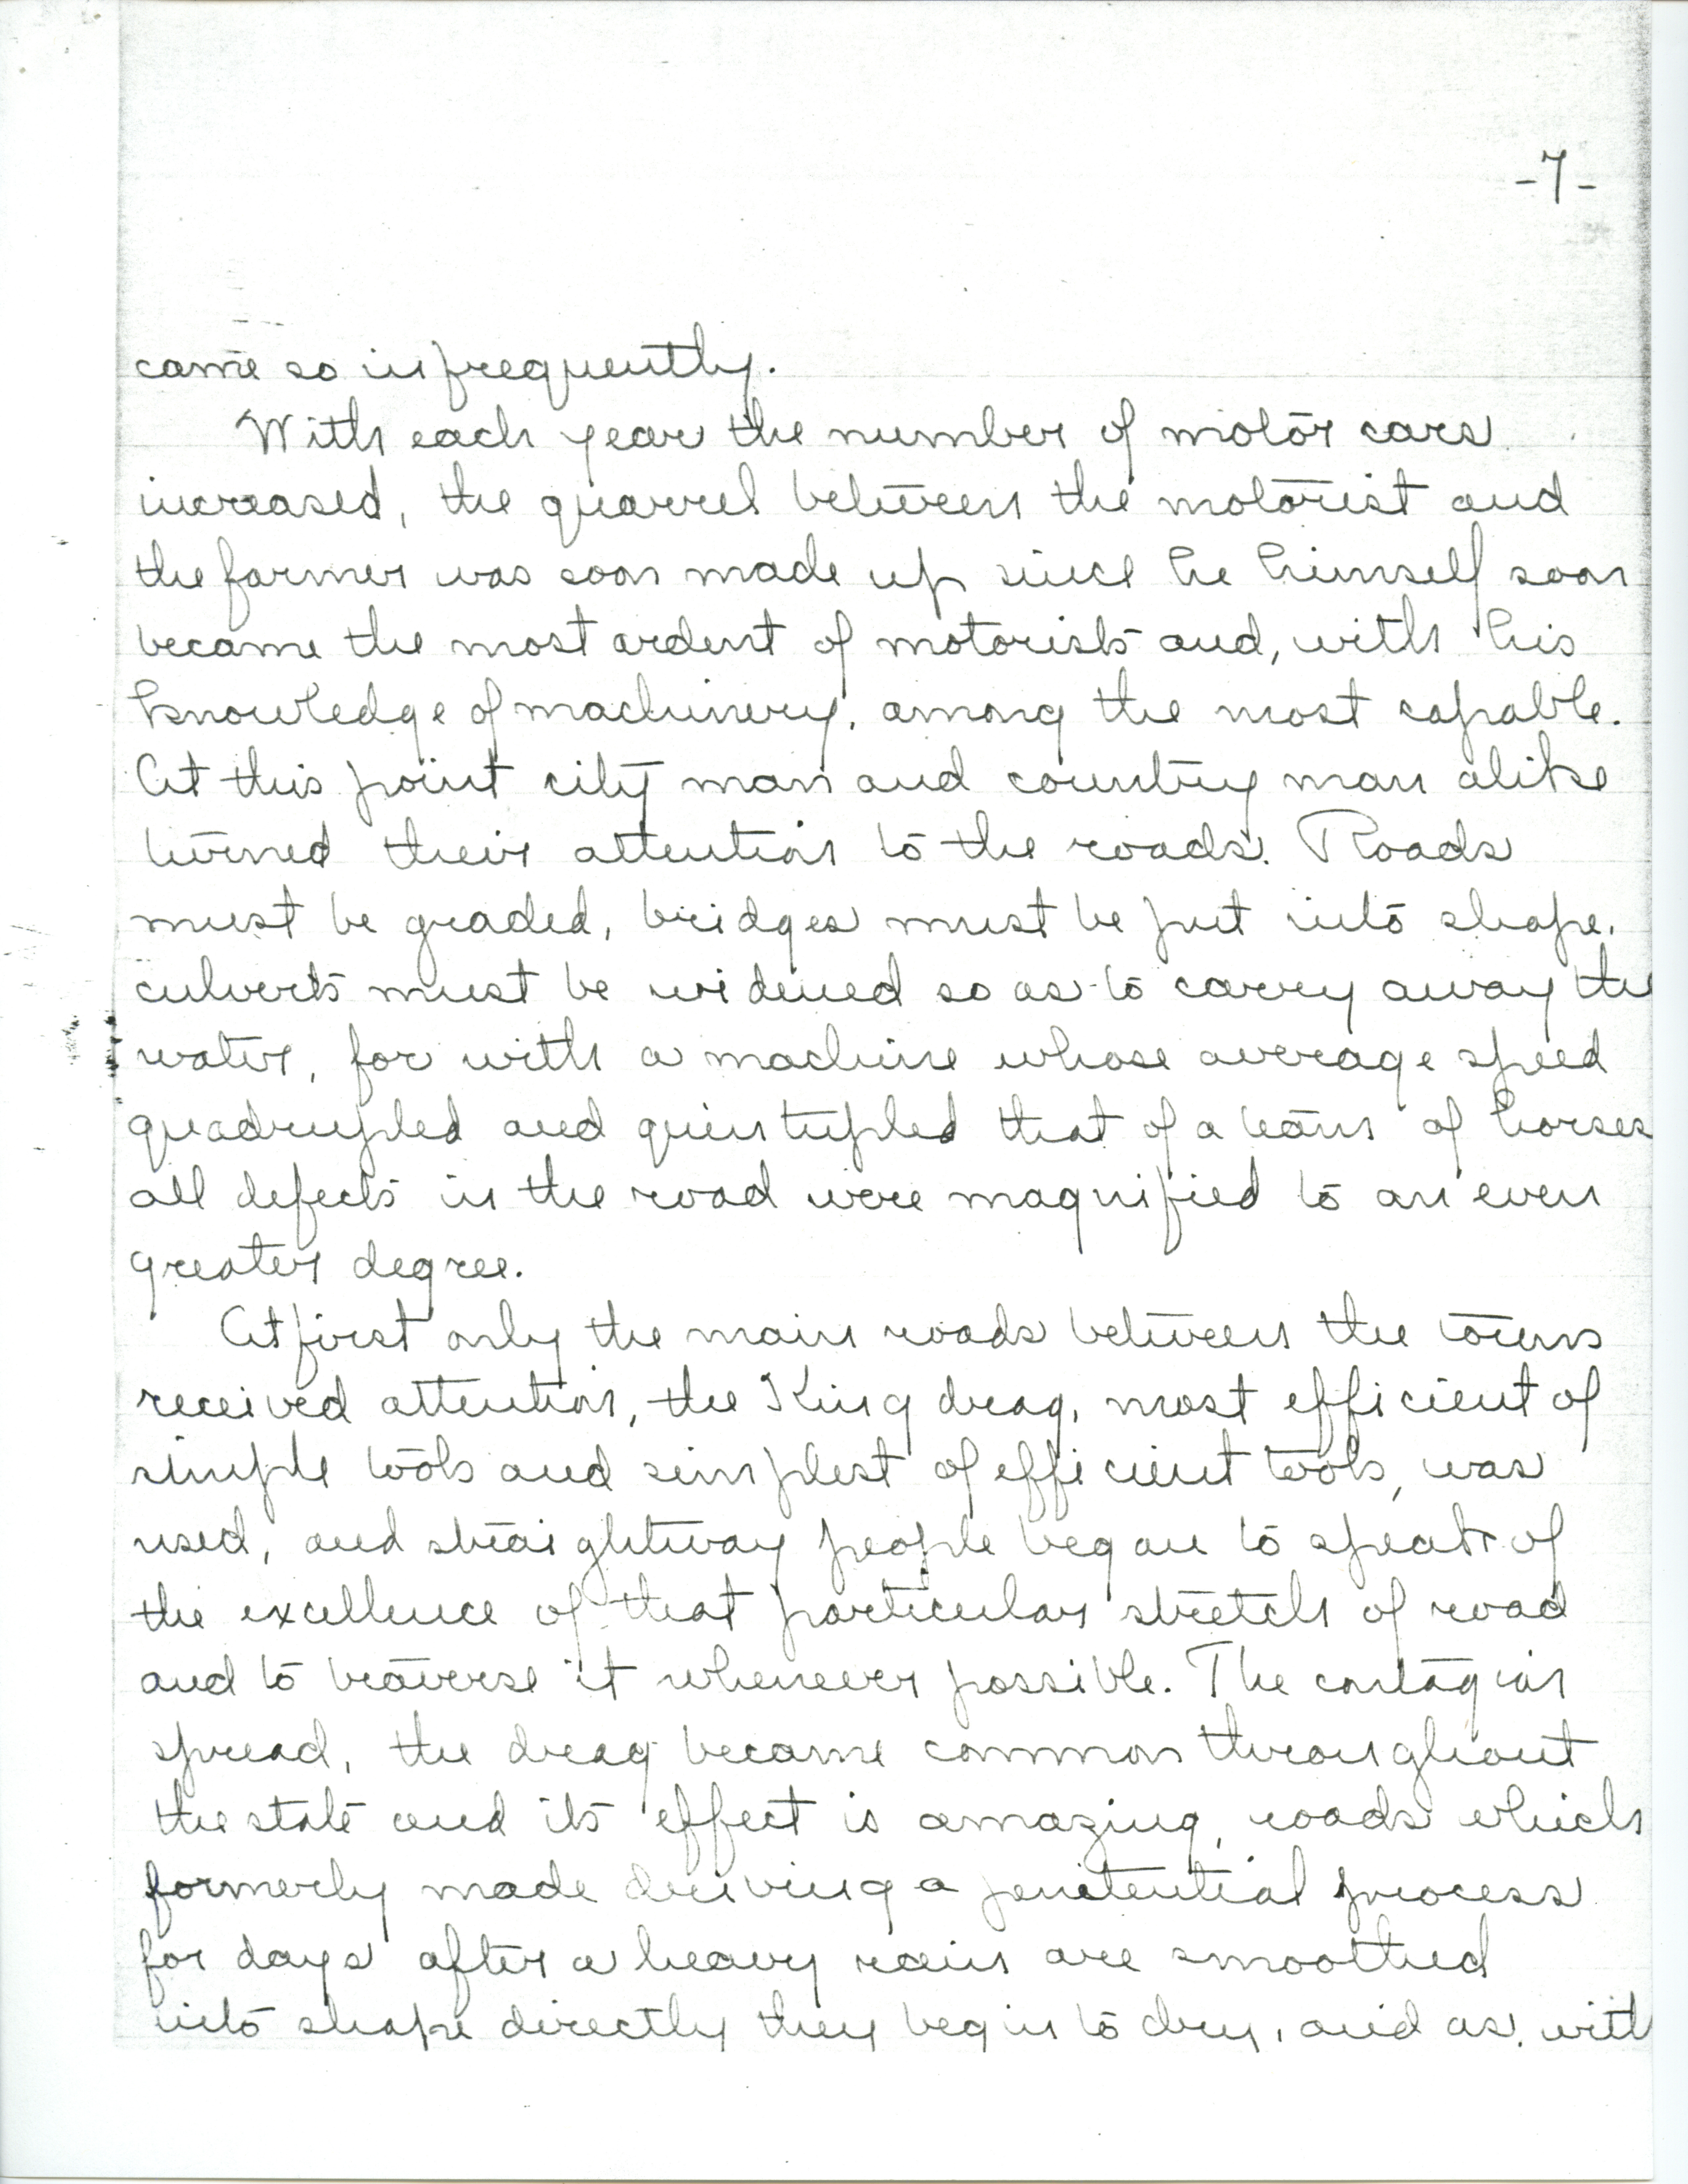 -7-
came so infrequently.
With each year the number of motor cars
increased, the quarrel between the motorist and
the farmer was soon made up since he himself soon
became the most ardent of motorists and, with his
knowledge of machinery, among the most capable.
At this point city man and country man alike
turned their attention to the roads. Roads
must be graded, bridges must be put into shape,
culverts must be widened so as to carry away the
water, for with a machine whose average speed
quadrupled and quintupled that of a team of horses
all defects in the road were magnified to an even
greater degree.
At first only the main roads between the towns
received attention, the King drag, most efficient of
simple tools and simplest of efficient tools, was
used, and straightway people began to speak of
the excellence of that particular stretch of road
and to traverse it whenever possible. The contagion
spread, the drag became common throughout
the state and its effect is amazing, roads which
formerly made driving a penitential process
for days after a heavy rain are smoothed
into shape directly they begin to dry, and as, with